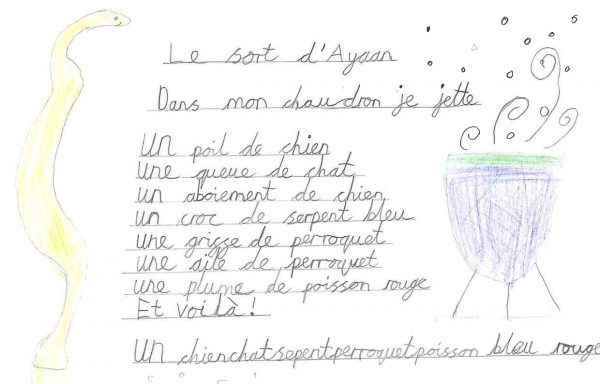 Le sort d'Ayaan
Dans mon chaudron je jette
Un poil de chien
Une queue de chat
Un aboiement de chien
Un croc de serpent bleu
Une grisse de perroquet
Une aile de perroquet
Une plume de poisson rouge
Et voilà!
Un chienchatsepentperroquetpoisson bleu rouge